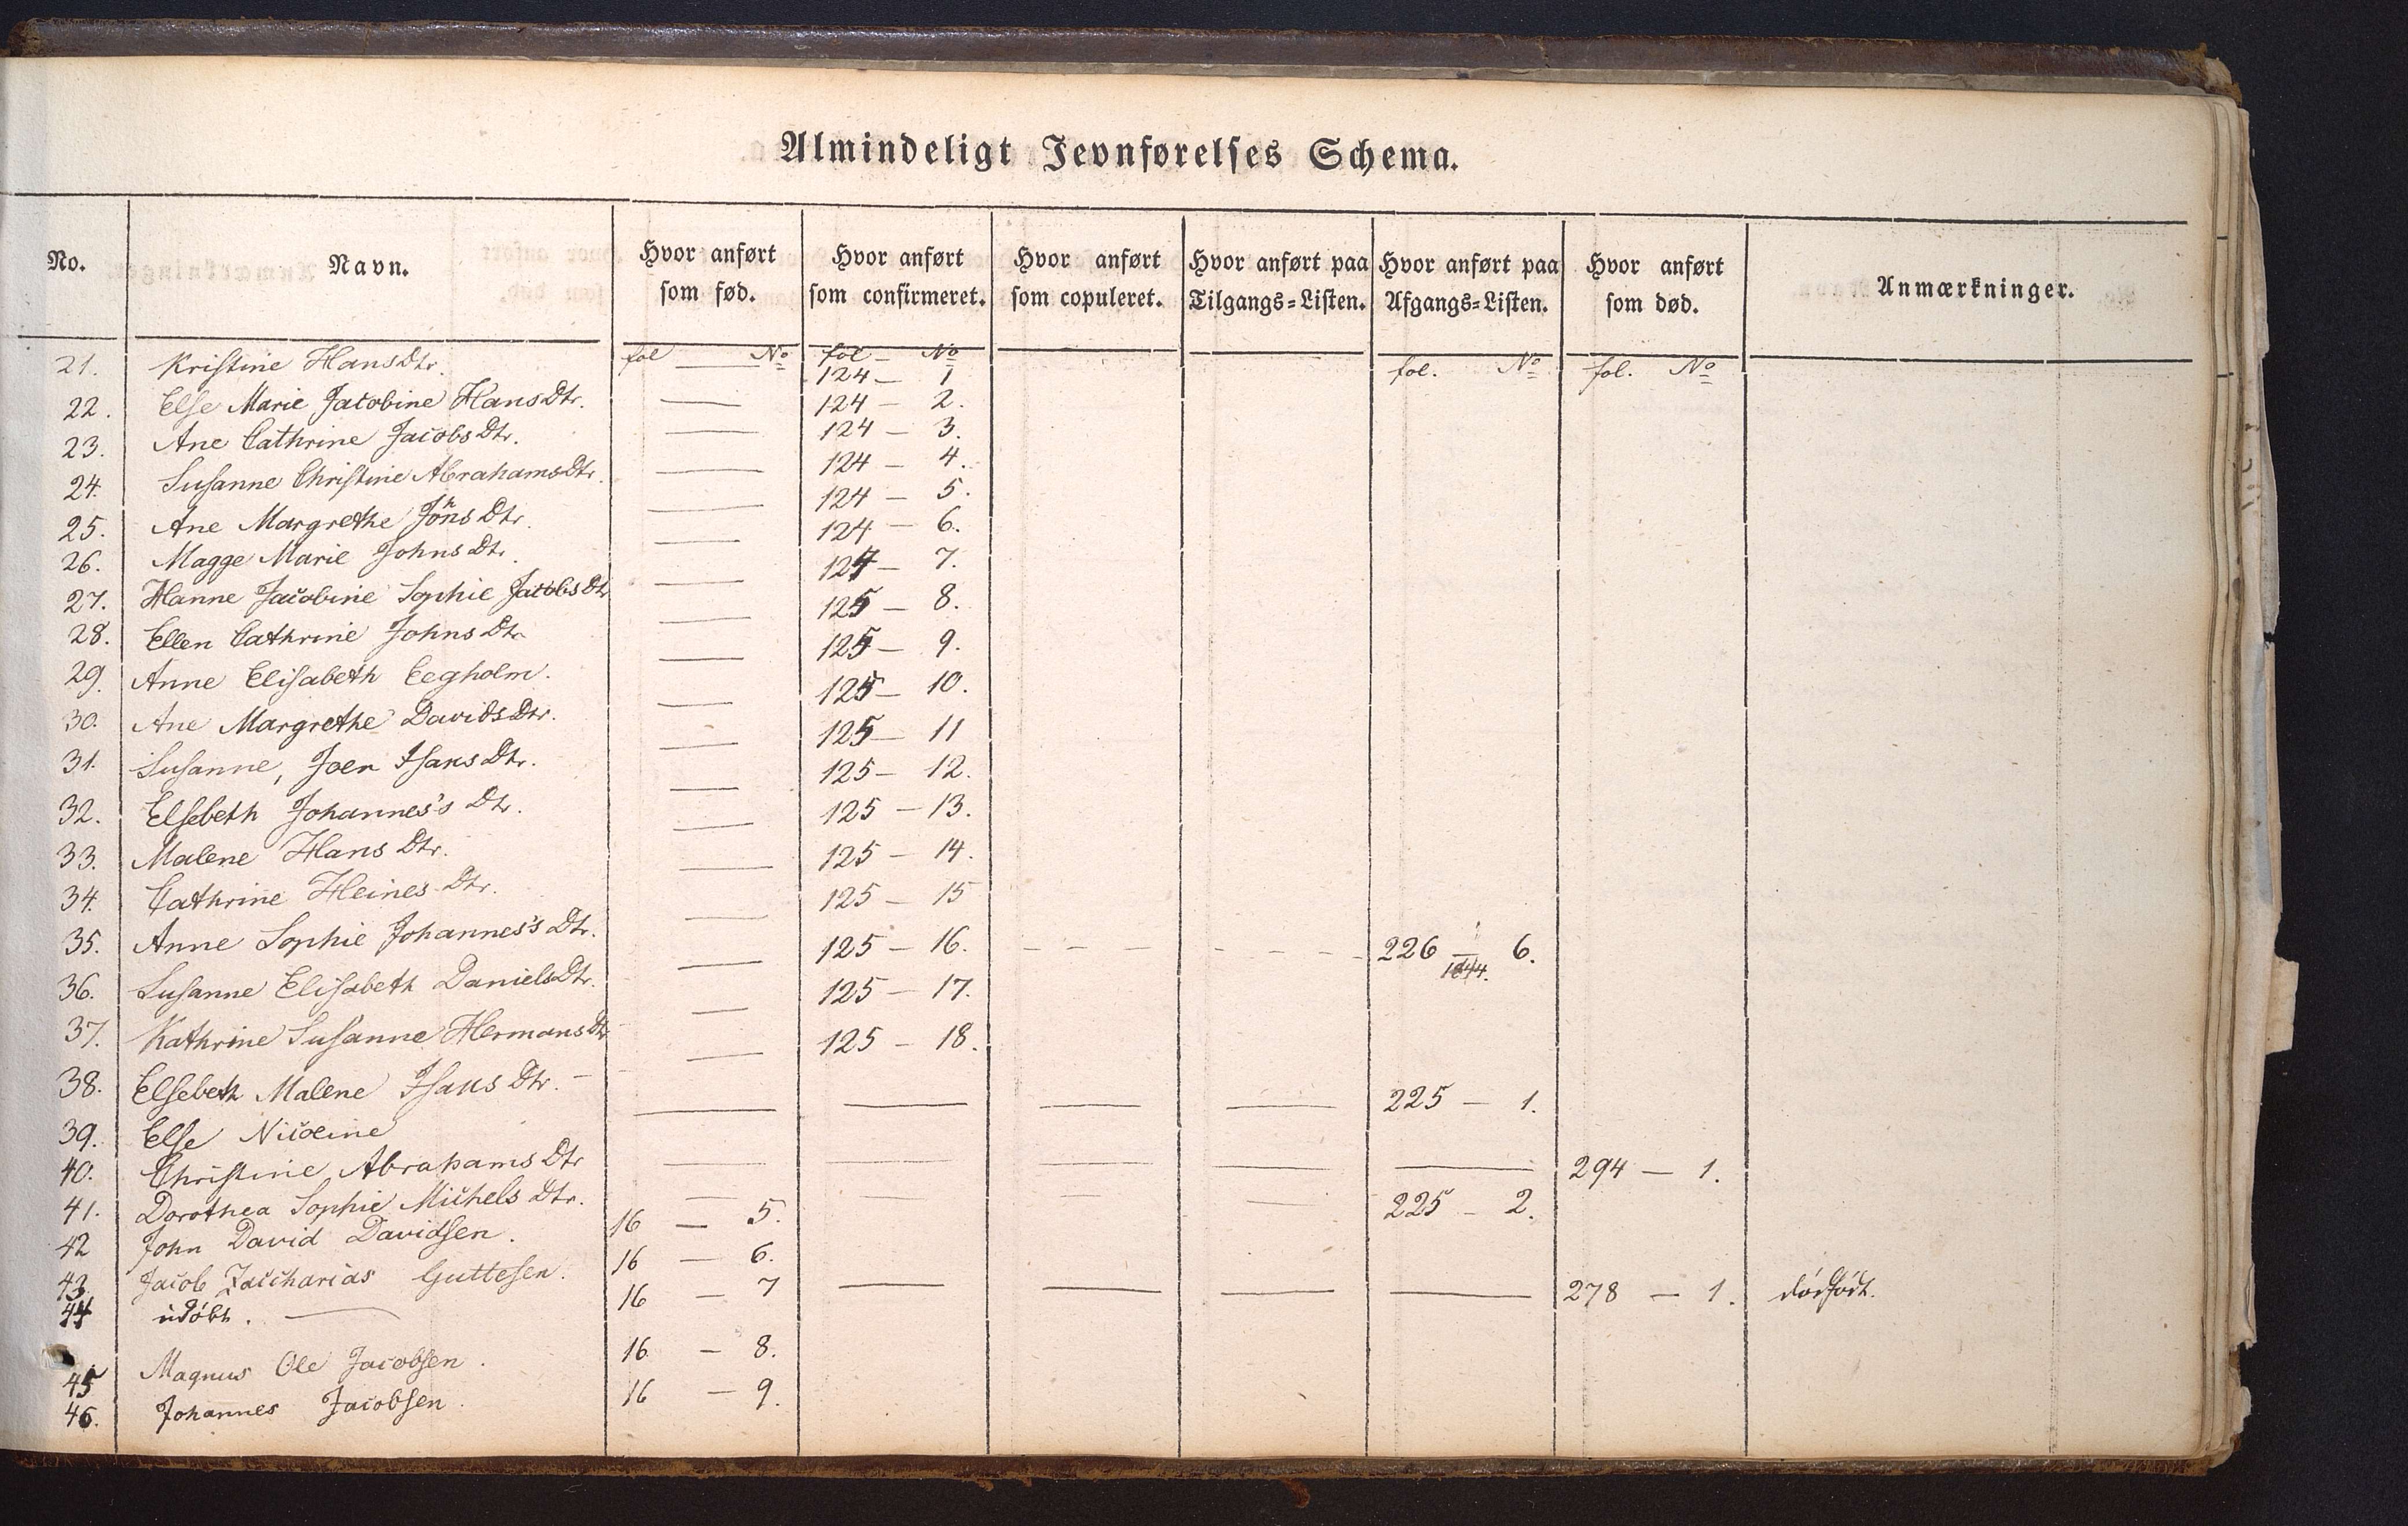 Almindeligt Jevnførelses Schema.
No. Navn. Hvor anført som fød. Hvor anført som confirmeret. Hvor anført som copuleret. Hvor anført paa Tilgangs=Listen. Hvor anført paa Afgangs=Listen. Hvor anført som død. Anmærkninger.
fol — No fol — No fol. No fol. No
21. Kristine HansDtr. 124 — 1
22. Else Marie Jacobine HansDtr. — 124 — 2.
23. Ane Cathrine JacobsDtr. — 124 — 3.
24. Susanne Christine AbrahamsDtr. — 124 — 4.
25. Ane Margrethe JönsDtr. — 124 — 5.
26. Magge Marie JohnsDtr. — 124 — 6.
27. Hanne Jacobine Sophie JacobsDtr — 124 — 7.
28. Ellen Cathrine JohnsDtr. — 125 — 8.
29. Anne Elisabeth Eegholm. — 125 — 9.
30. Ane Margrethe DavidsDtr. — 125 — 10.
31. Susanne, Joen IsaksDtr. — 125 — 11
32. Elsebeth Johannes's Dtr. — 125 — 12.
33. Malene Hans Dtr. — 125 — 13.
34. Cathrine Heines Dtr. — 125 — 14.
— 125 — 15
35. Anne Sophie Johannes's Dtr. — 125 — 16. - - - - - - - 226 — 6.
1844.
36. Susanne Elisabeth DanielsDtr. — 125 — 17.
37. Kathrine Susanne HermansDtr — 125 — 18.
38. Elsebeth Malene Isaks Dtr. — — — — — 225 — 1.
39. Else Nicoline — — — — — 294 — 1.
40. Christine Abrahams Dtr — — — 225 — 2.
41. Dorothea Sophie Michels Dtr. 16 — 5.
42 John David Davidsen. 16 — 6.
43. Jacob Zaccharias Guttesen. 16 — 7 — — — — 278 — 1. dödfödt.
44 udöbt. —
45 Magnus Ole Jacobsen. 16 — 8.
46. Johannes Jacobsen. 16 — 9.